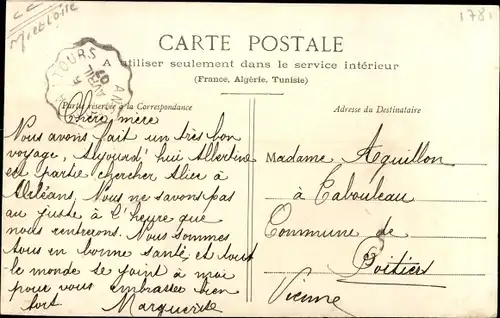 Mte et Loire
1781
CARTE POSTALE
A utiliser seulement dans le service intérieur
(France, Algérie, Tunisie)
TOURS A
AVRIL
07
Partie réservée à la Correspondance
Adresse du Destinataire
Chère mère
Nous avons fait un très bon
voyage, Aujourd'hui Albertine
est partie chercher Alice à
Orléans. Nous ne savons pas
au juste à l'heure que
nous rentrerons. Nous sommes
tous en bonne santé et tout
le monde se joint à moi
pour vous embrasser bien
fort Marguerite
Madame Aquillon
à Cabouleau
Commune de
Poitiers
Vienne